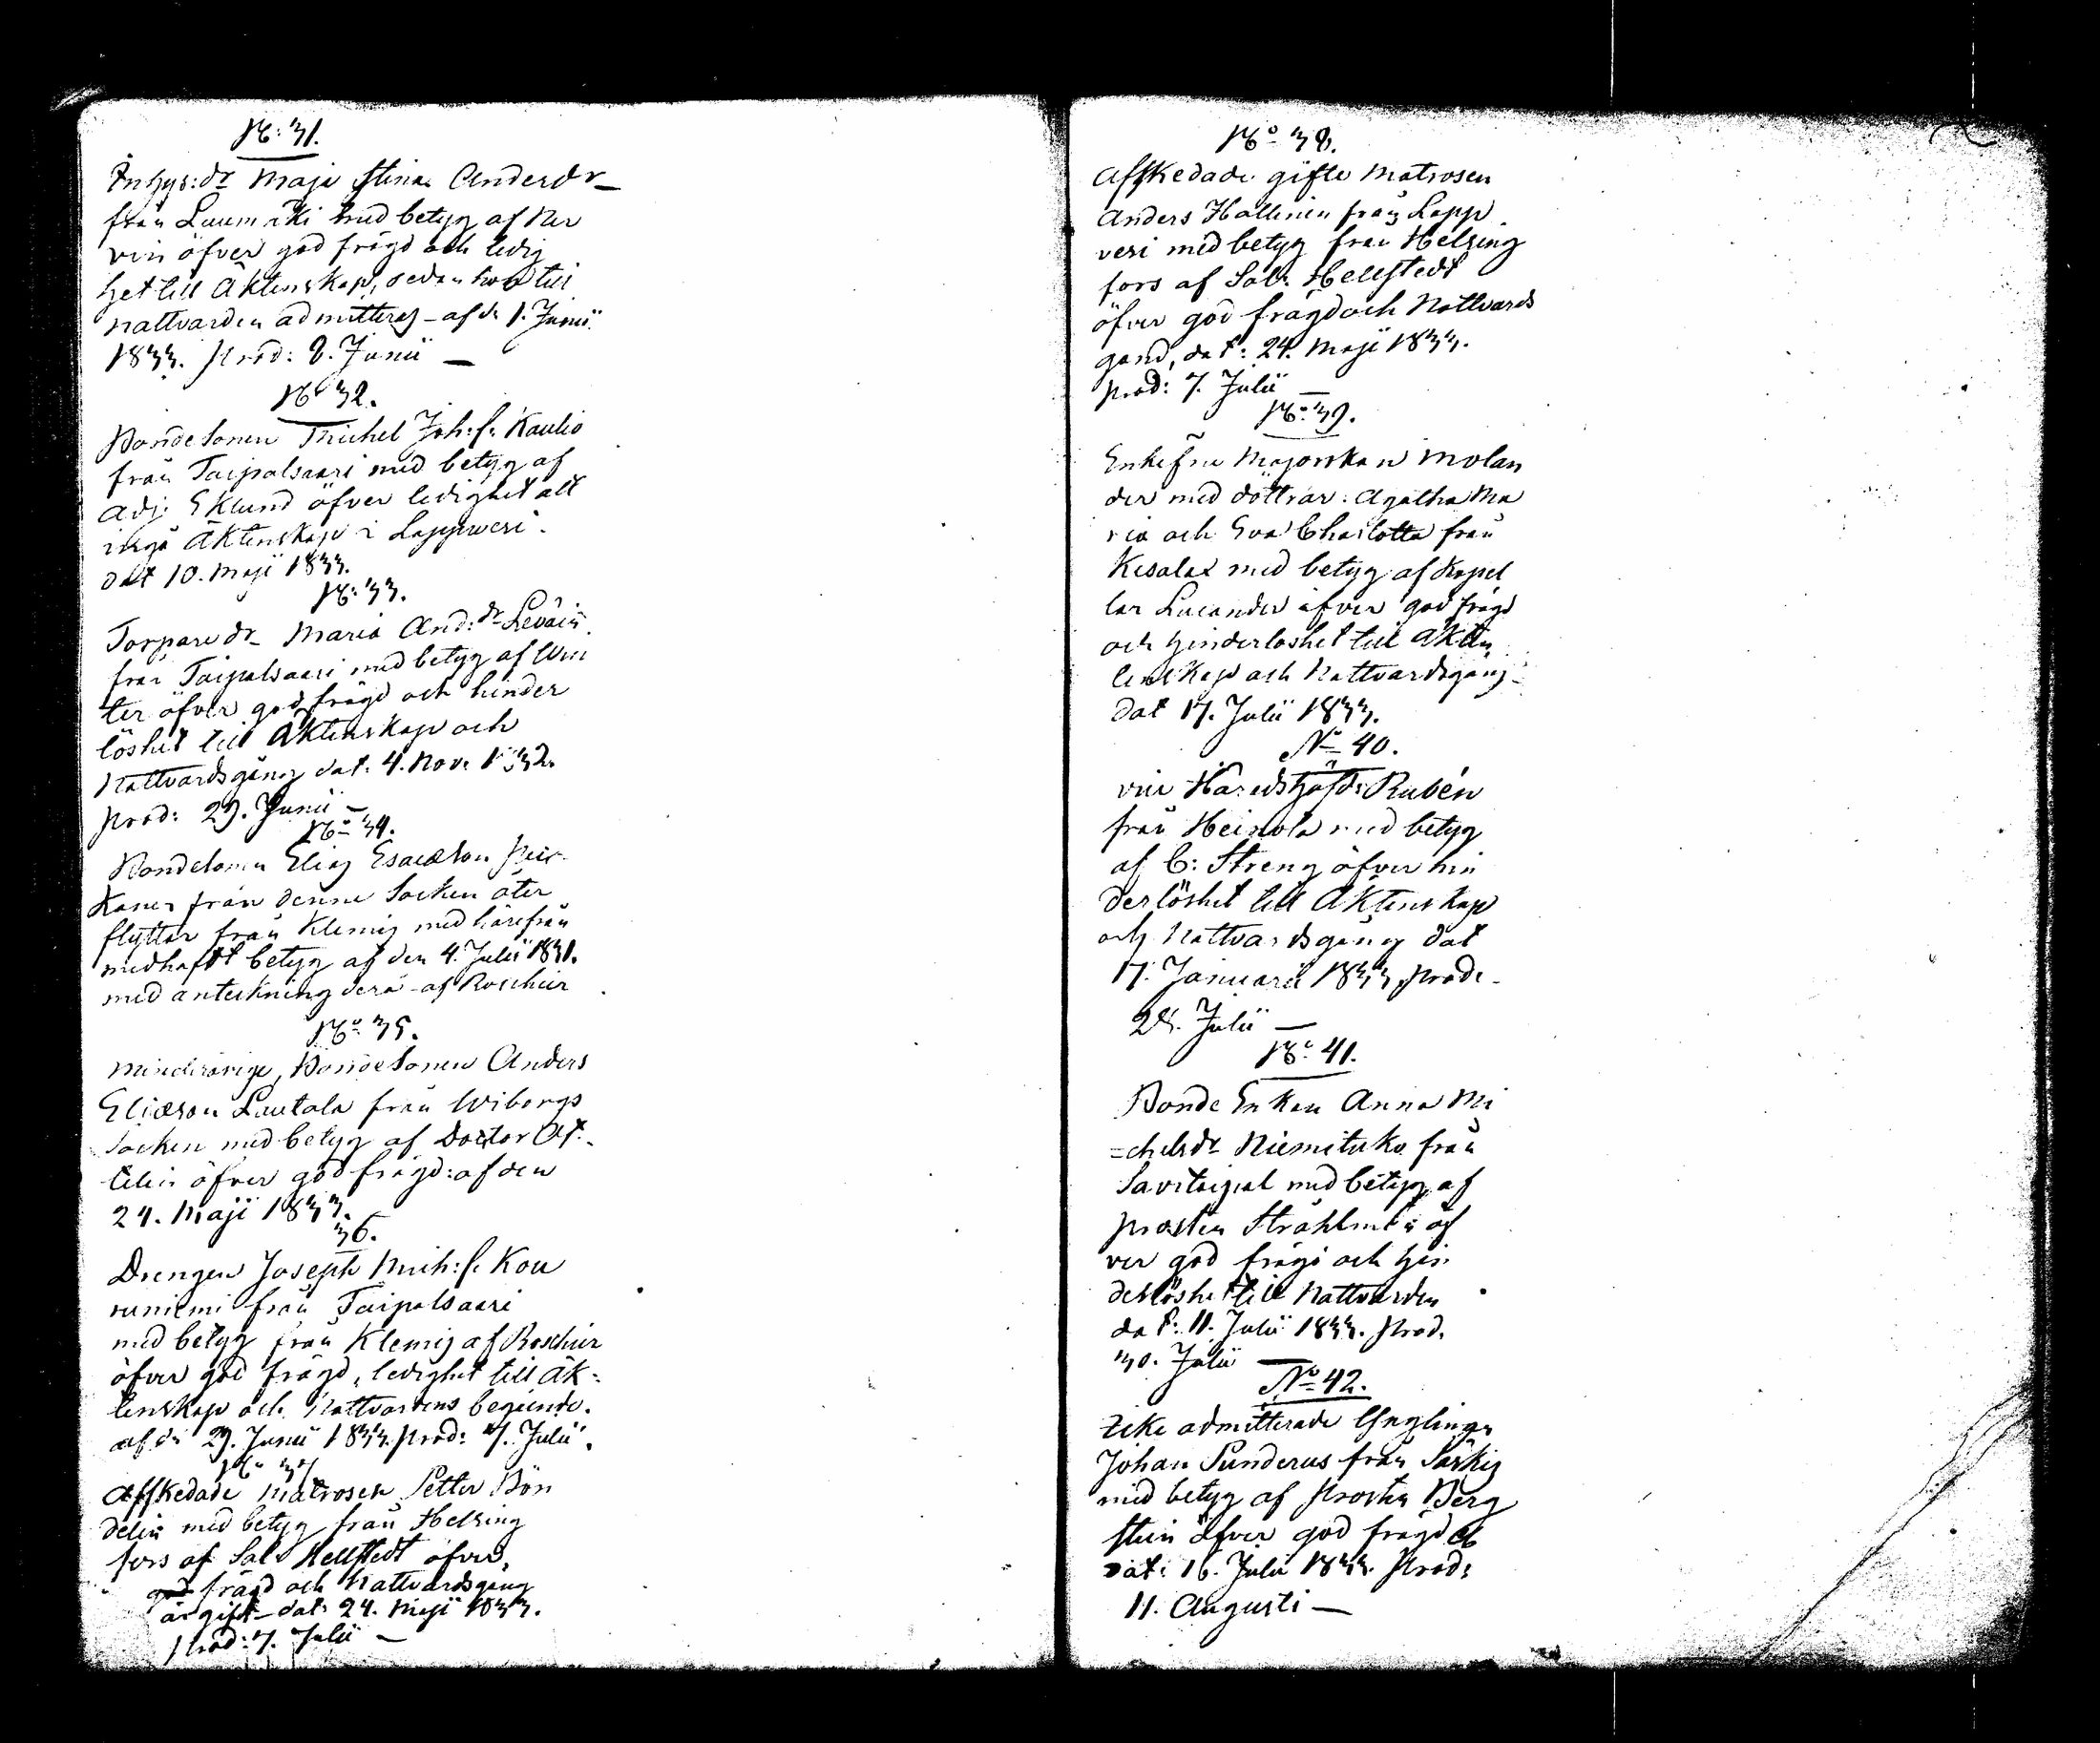 N: 31.
Inhys: dr Maja Stina Andersdr
från Luumäki med betyg af Ner
vin öfver god frägd och ledig
het till Äktenskap, sedan hon till
Nattvarden admitteras - af d. 1. Junii
1833. Prod: 8. Junii —
No 32.
Bondesonen Michel Joh: s. Kaulio
från Taipalsaari med betyg af
Adj: Eklund öfver ledighet att
ingå Äktenskap i Lappweri.
dat 10. Maji 1833.
N: 33.
Torpare dr Maria And: dr Leväin
från Taipalsaari med betyg af Win
ter öfver god frägd och hinder
löshet till Äktenskap och
Nattvardsgång dat. 4. Nov. 1832.
prod: 29. Junii —
No 34.
Bondesonen Elias Esaiæson
kaner från denne Socken åter
flyttar från Klemis med härifrån
medhaft betyg af den 4. Julii 1831.
med anteckning derå af Roschier
No 35.
Minderårige, Bondesonen Anders
Eliæson Lautala från Wiborgs
Socken med betyg af Doctor
öfver god frägd: af den
24. Maji 1833.
36.
Drengen Joseph Mich: s. Kou
runiemi från Taipalsaari
med betyg från Klemis af Roschier
öfver god frägd, ledighet till Äk=
tenskap och Nattvardens begående.
af d: 29. Junii 1833. Prod: 7. Julii.
No 37
Afskedade Matrosen Petter Bön
delin med betyg från Helsing
fors af Sal: Hellstedt öfver
god frägd och Nattvardsgång
är gift - dat: 24. Maji 1833.
Prod: 7. Julii —
No 38.
Afskedade gifte Matrosen
Anders Hallinen från Lapp
vesi med betyg från Helsing
fors af Sal: Hellstedt
öfver god frägd och Nattvards
gång, dat: 24. Maji 1833.
prod: 7. Julii —
No 39.
Enkefru Majorskan Molan
der med döttrar: Agatha Ma
ria och Eva Charlotta från
Kesalax med betyg af Kapel
lan Lucander öfver god frägd
och hinderlöshet till Äkten
skap och Nattvardsgång
dat 17. Julii 1833.
No 40.
vice Häradshöfd: Rubén
från Heinola med betyg
af C: Streng öfver hin
derlöshet till Äktenskap
och Nattvardsgång dat
17. Januarii 1833. Prod.
28. Julii —
No 41.
Bonde Enkan Anna Mi
=chelsdr Niemituko från
Savitaipal med betyg af
prosten Stråhlman öf
ver god frägd och hin
derlöshet till Nattvarden
dat: 11. Julii 1833. Prod.
30. Julii —
No 42.
Icke admitterade Ynglingen
Johan Sunderus från Särkis
med betyg af Prosten Berg
stein öfver god frägd
dat: 16. Julii 1833. Prod:
11. Augusti —